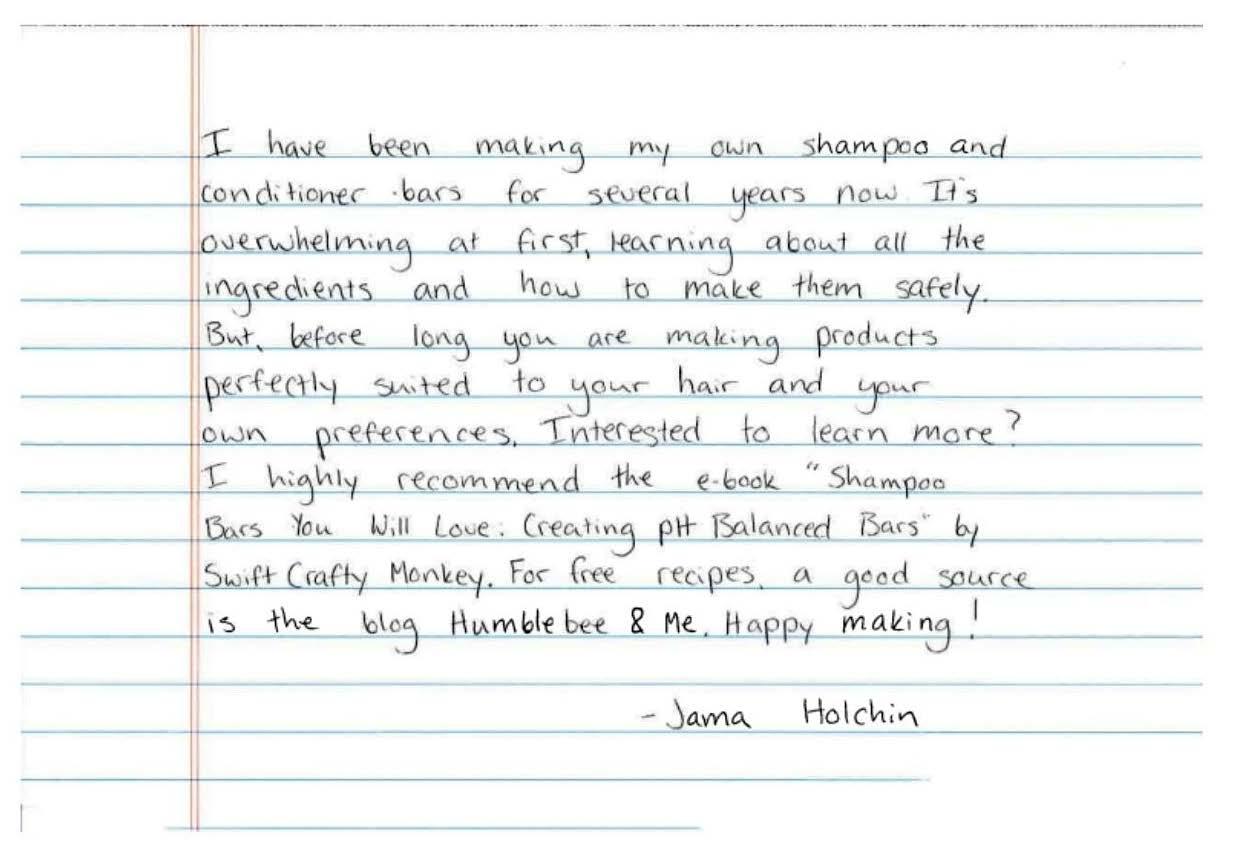 I have been making my own shampoo and
conditioner bars for several years now. It's
overwhelming at first, learning about all the
ingredients and how to make them safely.
But, before long you are making products
perfectly suited to your hair and your
own preferences. Interested to learn more?
I highly recommend the e-book "Shampoo
Bars You Will Love: Creating pH Balanced Bars" by
Swift Crafty Monkey. For free recipes, a good source
is the blog Humblebee & Me. Happy making!
- Jama Holchin